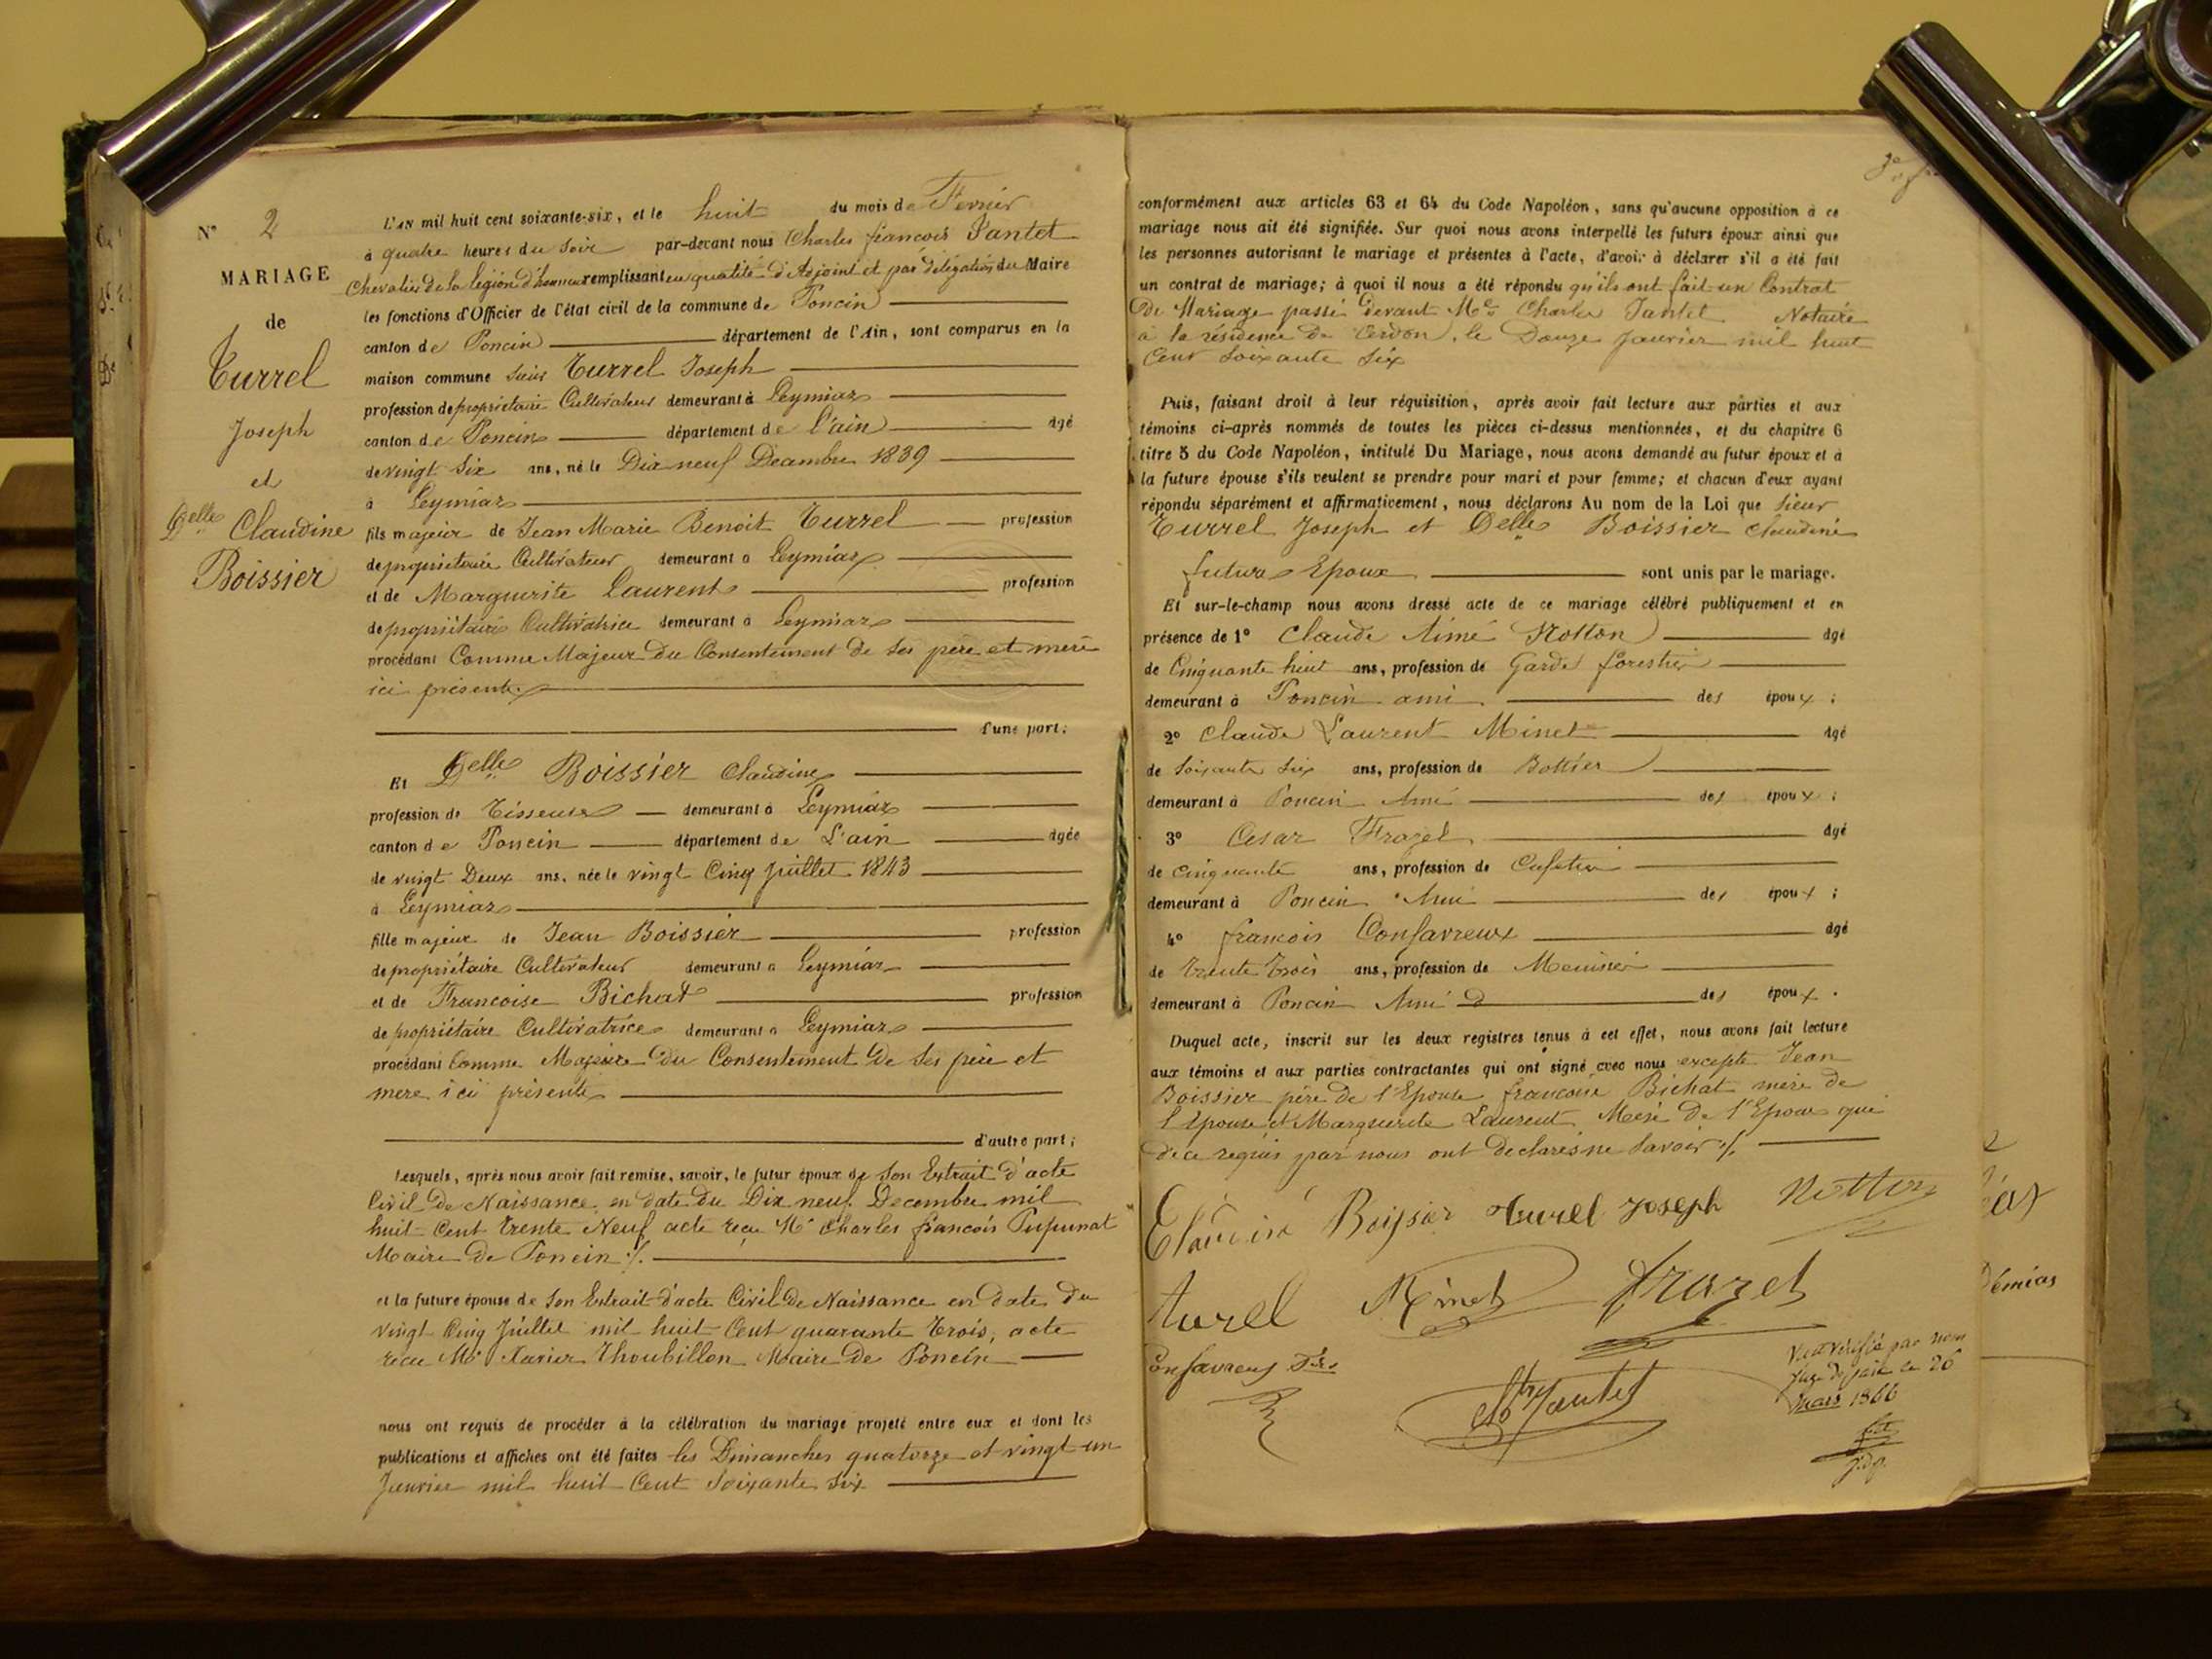 N° 2
MARIAGE
de
Turrel
Joseph
et
Delle Claudine
Boissier
L'AN mil huit cent soixante-six, et le huit du mois de Fevrier
à quatre heures du Soir par-devant nous Charles françois Jantet
Chevalier de la légion d'honneur remplissant en qualité d'Adjoint et par délégation du Maire
les fonctions d'Officier de l'état civil de la commune de Poncin
canton de Poncin département de l'Ain, sont comparus en la
maison commune Sieur Turrel Joseph
profession de propriétaire Cultivateur demeurant à Leymiaz
canton de Poncin département de l'ain âgé
de vingt Six ans, né le Dix neuf Decembre 1839
à Leymiaz
fils majeur de Jean Marie Benoit Turrel profession
de propriétaire Cultivateur demeurant à Leymiaz
et de Marguerite Laurent profession
de propriétaire Cultivatrice demeurant à Leymiaz
procédant Comme Majeur du Consentement de Ses père et mere
ici présents
d'une part;
Et Delle Boissier Claudine
profession de Tisseuse demeurant à Leymiaz
canton de Poncin département de L'ain âgée
de vingt Deux ans, née le vingt Cinq Juillet 1843
à Leymiaz
fille majeure de Jean Boissier profession
de propriétaire Cultivateur demeurant à Leymiaz
et de Francoise Bichat profession
de propriétaire Cultivatrice demeurant à Leymiaz
procédant Comme Majeure du Consentement de Ses père et
mere ici présents
d'autre part;
Lesquels, après nous avoir fait remise, savoir, le futur époux de Son Extrait d'acte
Civil de Naissance en date du Dix neuf Decembre mil
huit Cent trente Neuf acte reçu Mr Charles francois Pupunat
Maire de Poncin ./.
et la future épouse de Son Extrait d'acte Civil de Naissance en date du
vingt Cinq Juillet mil huit Cent quarante trois, acte
recu Mr Xavier Thoubillon Maire de Poncin
nous ont requis de procéder à la célébration du mariage projeté entre eux et dont les
publications et affiches ont été faites les Dimanches quatorze et vingt un
Janvier mil huit Cent Soixante Six
conformément aux articles 63 et 64 du Code Napoléon, sans qu'aucune opposition à ce
mariage nous ait été signifiée. Sur quoi nous avons interpellé les futurs époux ainsi que
les personnes autorisant le mariage et présentes à l'acte, d'avoir à déclarer s'il a été fait
un contrat de mariage; à quoi il nous a été répondu qu'ils ont fait un Contrat
de Mariage passé devant Me Charles Jantet Notaire
à la résidence de Cerdon, le Douze Janvier mil huit
Cent Soixante Six
Puis, faisant droit à leur réquisition, après avoir fait lecture aux parties et aux
témoins ci-après nommés de toutes les pièces ci-dessus mentionnées, et du chapitre 6
titre 5 du Code Napoléon, intitulé Du Mariage, nous avons demandé au futur époux et à
la future épouse s'ils veulent se prendre pour mari et pour femme; et chacun d'eux ayant
répondu séparément et affirmativement, nous déclarons Au nom de la Loi que Sieur
Turrel Joseph et Delle Boissier Claudine
futurs Epoux sont unis par le mariage.
Et sur-le-champ nous avons dressé acte de ce mariage célébré publiquement et en
présence de 1° Claude Aimé Notton âgé
de Cinquante huit ans, profession de Garde forestier
demeurant à Poncin ami des époux;
2° Claude Laurent Minet âgé
de Soixante Six ans, profession de Bottier
demeurant à Poncin Ami des époux;
3° Cesar Frazet âgé
de Cinquante ans, profession de Cafetier
demeurant à Poncin Ami des époux;
4° francois Confavreux âgé
de trente trois ans, profession de Menuisier
demeurant à Poncin Ami des époux.
Duquel acte, inscrit sur les deux registres tenus à cet effet, nous avons fait lecture
aux témoins et aux parties contractantes qui ont signé avec nous excepté Jean
Boissier père de l'Epouse francoise Bichat mère de
l'Epouse et Marguerite Laurent Mère de l'Epoux qui
de ce requis par nous ont declarés ne Savoir ./.
Claudine Boissier turel Joseph Notton
turel Minet Frazet
Confavreux Fcs
Ch Jantet
Vu et vérifié par nous
Juge de paix le 26
Mars 1866